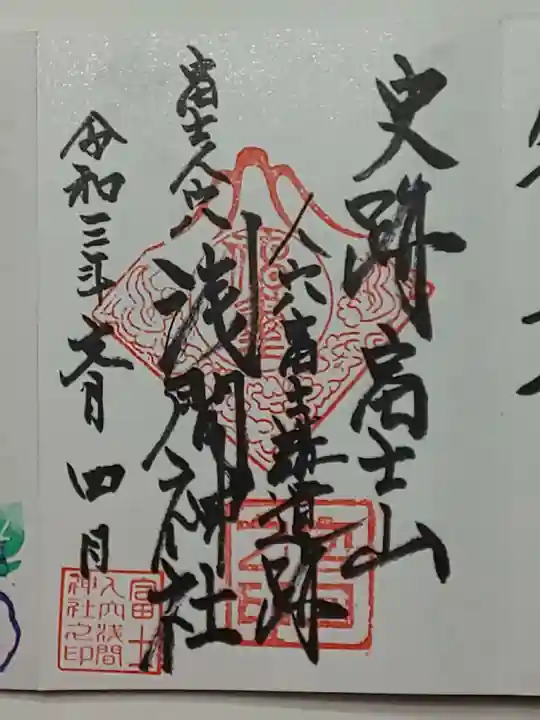 史跡富士山
人穴富士講遺跡
富士人穴
浅間神社
令和三年文月四日
富士
人穴浅間
神社之印